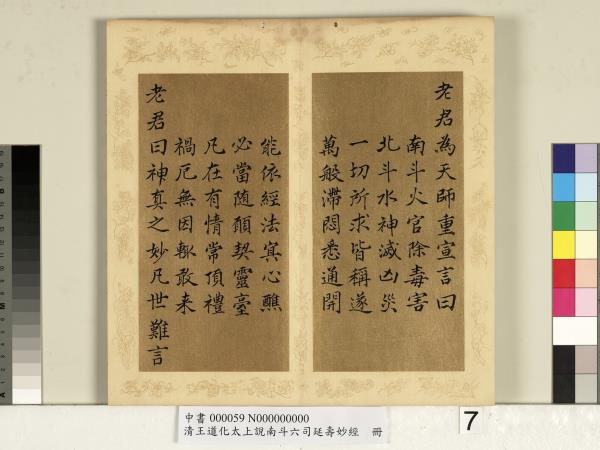 老君為天師重宣言曰
南斗火官除毒害
北斗水神滅凶災
一切所求皆稱遂
萬般滯悶悉通開
能依經法冥心醮
必當随願契靈臺
凡在有情常頂禮
禍厄無因輙敢来
老君曰神真之妙凡世難言
中書 000059 N000000000
清王道化太上說南斗六司延壽妙經 冊
7